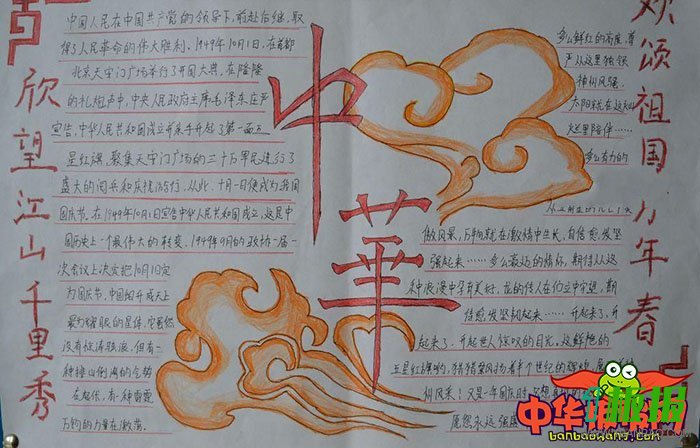 欣望江山千里秀
中国人民在中国共产党的领导下,前赴后继,取
得了人民革命的伟大胜利。1949年10月1日,在首都
北京天安门广场举行了开国大典,在隆隆
的礼炮声中,中央人民政府主席毛泽东庄严
宣告,中华人民共和国成立并亲手升起了第一面五
星红旗,聚集天安门广场的三十万军民进行了
盛大的阅兵和庆祝游行。从此,十月一日便成为我国
国庆节。在1949年10月1日宣告中华人民共和国成立,这是中
国历史上一个最伟大的转变。1949年9月的政协一届一
次会议上决定把10月1日定
为国庆节。中国
没有
在起伏,有一种雷霆
万钧的力量在激荡。
中華
多么鲜红的高度,尊
严从这里独领
神州风骚
太阳就在这
这里陪伴……
多么有力的
傲风景,万物就在激情中生长,自信愈发坚
强起来……多么豪迈的情怀,期待从这
种浪漫中孕育美好,龙的传人在们立中守望,期
待愈发坚韧起来……升起来了,升
起来了,升起世人惊叹的目光,这鲜艳的
五星红旗哟,猎猎飘扬着半个世纪的辉煌,
州风采!又是一年国庆时
愿您永远
欢颂祖国万年春
中华
报
banbaowang.com